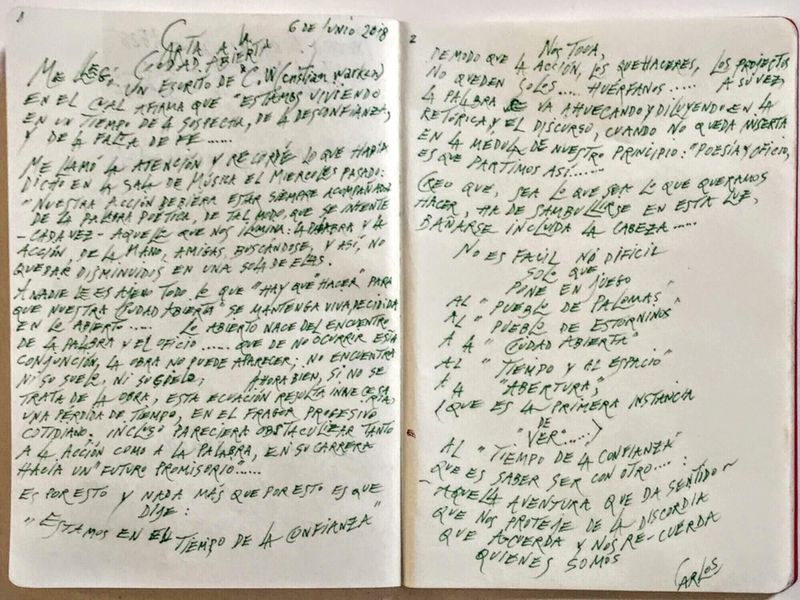 1
6 DE JUNIO 2018
CARTA A LA
CIUDAD ABIERTA
ME LEGÓ, UN ESCRITO DE "C.W (CRISTIAN WARKEN)
EN EL CUAL AFIRMA QUE "ESTAMOS VIVIENDO
EN UN TIEMPO DE LA SOSPECHA, DE LA DESCONFIANZA,
Y DE LA FALTA DE FE......
ME LLAMÓ LA ATENCIÓN Y RECORDÉ LO QUE HABÍA
DICHO EN LA SALA DE MÚSICA EL MIERCOLES PASADO:
"NUESTRA ACCIÓN DEBIERA ESTAR SIEMPRE ACOMPAÑADA
DE LA PALABRA POÉTICA, DE TAL MODO, QUE SE INTENTE
-CADA VEZ- AQUELLO QUE NOS ILUMINA: LA PALABRA Y LA
ACCIÓN, DE LA MANO, AMIGAS, BUSCANDOSE, Y ASÍ, NO
QUEDAR DISMINUIDOS EN UNA SOLA DE ELLAS.
A NADIE LE ES AJENO TODO LO QUE "HAY QUE HACER" PARA
QUE NUESTRA "CIUDAD ABIERTA" SE MANTENGA VIVA, DECIDIDA
EN LO ABIERTO..... LO ABIERTO NACE DEL ENCUENTRO
DE LA PALABRA Y EL OFICIO...... QUE DE NO OCURRIR ESTA
CONJUNCIÓN, LA OBRA NO PUEDE APARECER; NO ENCUENTRA
NI SU SUELO, NI SU CIELO; AHORA BIEN, SI NO SE
TRATA DE LA OBRA, ESTA ECUACIÓN RESULTA INNECESARIA,
UNA PÉRDIDA DE TIEMPO, EN EL FRAGOR PROGESIVO
COTIDIANO. INCLUSO PARECIERA OBSTACULIZAR TANTO
A LA ACCIÓN COMO A LA PALABRA, EN SU CARRERA
HACIA UN "FUTURO PROMISORIO"......
ES POR ESTO Y NADA MÁS QUE POR ESTO ES QUE
DIJE:
"ESTAMOS EN EL TIEMPO DE LA CONFIANZA"
2
NOS TOCA,
DE MODO QUE LA ACCIÓN, LOS QUEHACERES, LOS PROYECTOS
NO QUEDEN SOLOS..... HUÉRFANOS...... A SU VEZ,
LA PALABRA SE VA AHUECANDO Y DILUYENDO EN LA
RETÓRICA Y EL DISCURSO, CUANDO NO QUEDA INSERTA
EN LA MÉDULA DE NUESTRO PRINCIPIO: "POESIA Y OFICIO,
ES QUE PARTIMOS ASÍ......
CREO QUE, SEA LO QUE SEA LO QUE QUERAMOS
HACER, HA DE SAMBULLIRSE EN ESTA LUZ,
BAÑARSE INCLUIDA LA CABEZA.....
NO ES FACIL NÓ DIFICIL
SOLO QUE
PONE EN JUEGO
AL "PUEBLO DE PALOMAS"
AL "PUEBLO DE ESTORNINOS"
A LA "CIUDAD ABIERTA"
AL "TIEMPO Y AL ESPACIO"
A LA "ABERTURA",
(QUE ES LA PRIMERA INSTANCIA
DE
"VER".....)
AL "TIEMPO DE LA CONFIANZA"
QUE ES SABER SER CON OTRO....:
-AQUELLA AVENTURA QUE DA SENTIDO-
QUE NOS PROTEJE DE LA DISCORDIA
QUE ACUERDA Y NOS RE-CUERDA
QUIENES SOMOS
CARLOS